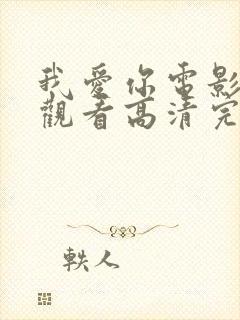 我愛你電影
觀看高清完
軼人